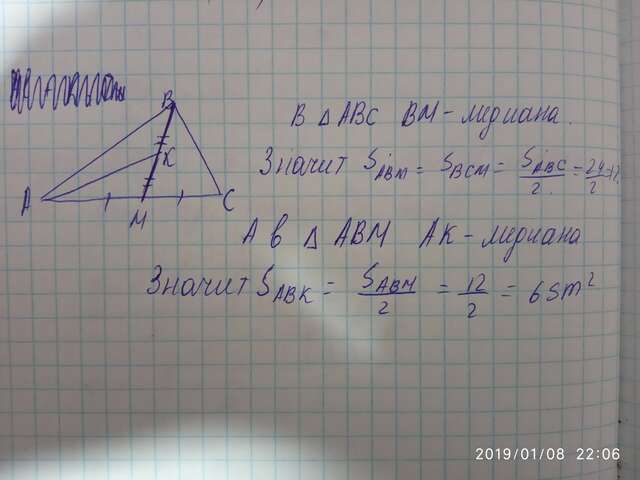 B
K
A
M
C
В △ ABC BM - медиана.
Значит S_ABM = S_BCM = S_ABC/2 = 24/2 = 12.
А в △ ABM AK - медиана
Значит S_ABK = S_ABM/2 = 12/2 = 6 sm²
2019/01/08 22:06